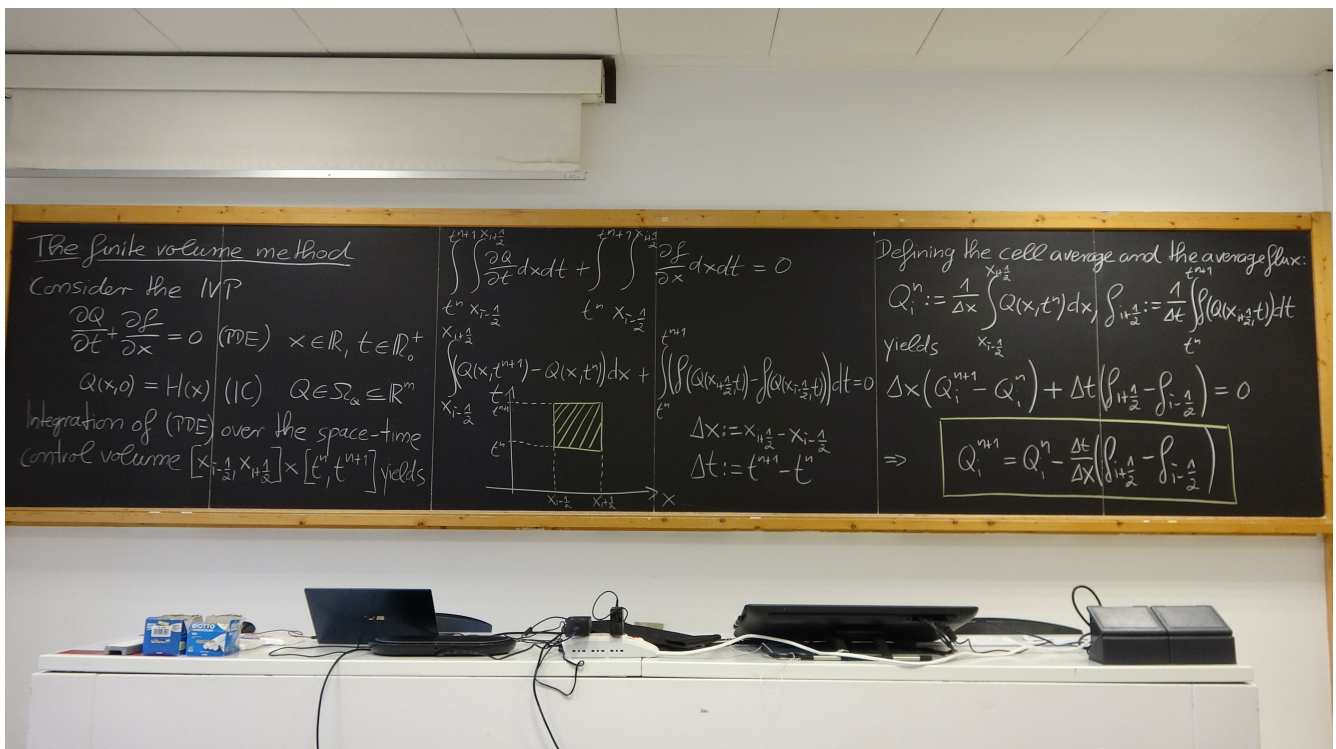 The finite volume method
Consider the IVP
∂Q/∂t + ∂f/∂x = 0 (PDE) x ∈ ℝ, t ∈ ℝ₀⁺
Q(x,0) = H(x) (IC) Q ∈ Ω_Q ⊆ ℝ^m
Integration of (PDE) over the space-time
control volume [x_{i-1/2}, x_{i+1/2}] × [t^n, t^{n+1}] yields
∫_{t^n}^{t^{n+1}} ∫_{x_{i-1/2}}^{x_{i+1/2}} ∂Q/∂t dxdt + ∫_{t^n}^{t^{n+1}} ∫_{x_{i-1/2}}^{x_{i+1/2}} ∂f/∂x dxdt = 0
∫_{x_{i-1/2}}^{x_{i+1/2}} (Q(x,t^{n+1}) - Q(x,t^n)) dx + ∫_{t^n}^{t^{n+1}} (f(Q(x_{i+1/2},t)) - f(Q(x_{i-1/2},t))) dt = 0
t
t^{n+1}
t^n
x_{i-1/2} x_{i+1/2} x
Δx := x_{i+1/2} - x_{i-1/2}
Δt := t^{n+1} - t^n
Defining the cell average and the average flux:
Q_i^n := 1/Δx ∫_{x_{i-1/2}}^{x_{i+1/2}} Q(x,t^n) dx, f_{i+1/2} := 1/Δt ∫_{t^n}^{t^{n+1}} f(Q(x_{i+1/2},t)) dt
yields
Δx(Q_i^{n+1} - Q_i^n) + Δt(f_{i+1/2} - f_{i-1/2}) = 0
=> Q_i^{n+1} = Q_i^n - Δt/Δx (f_{i+1/2} - f_{i-1/2})
GIOTTO